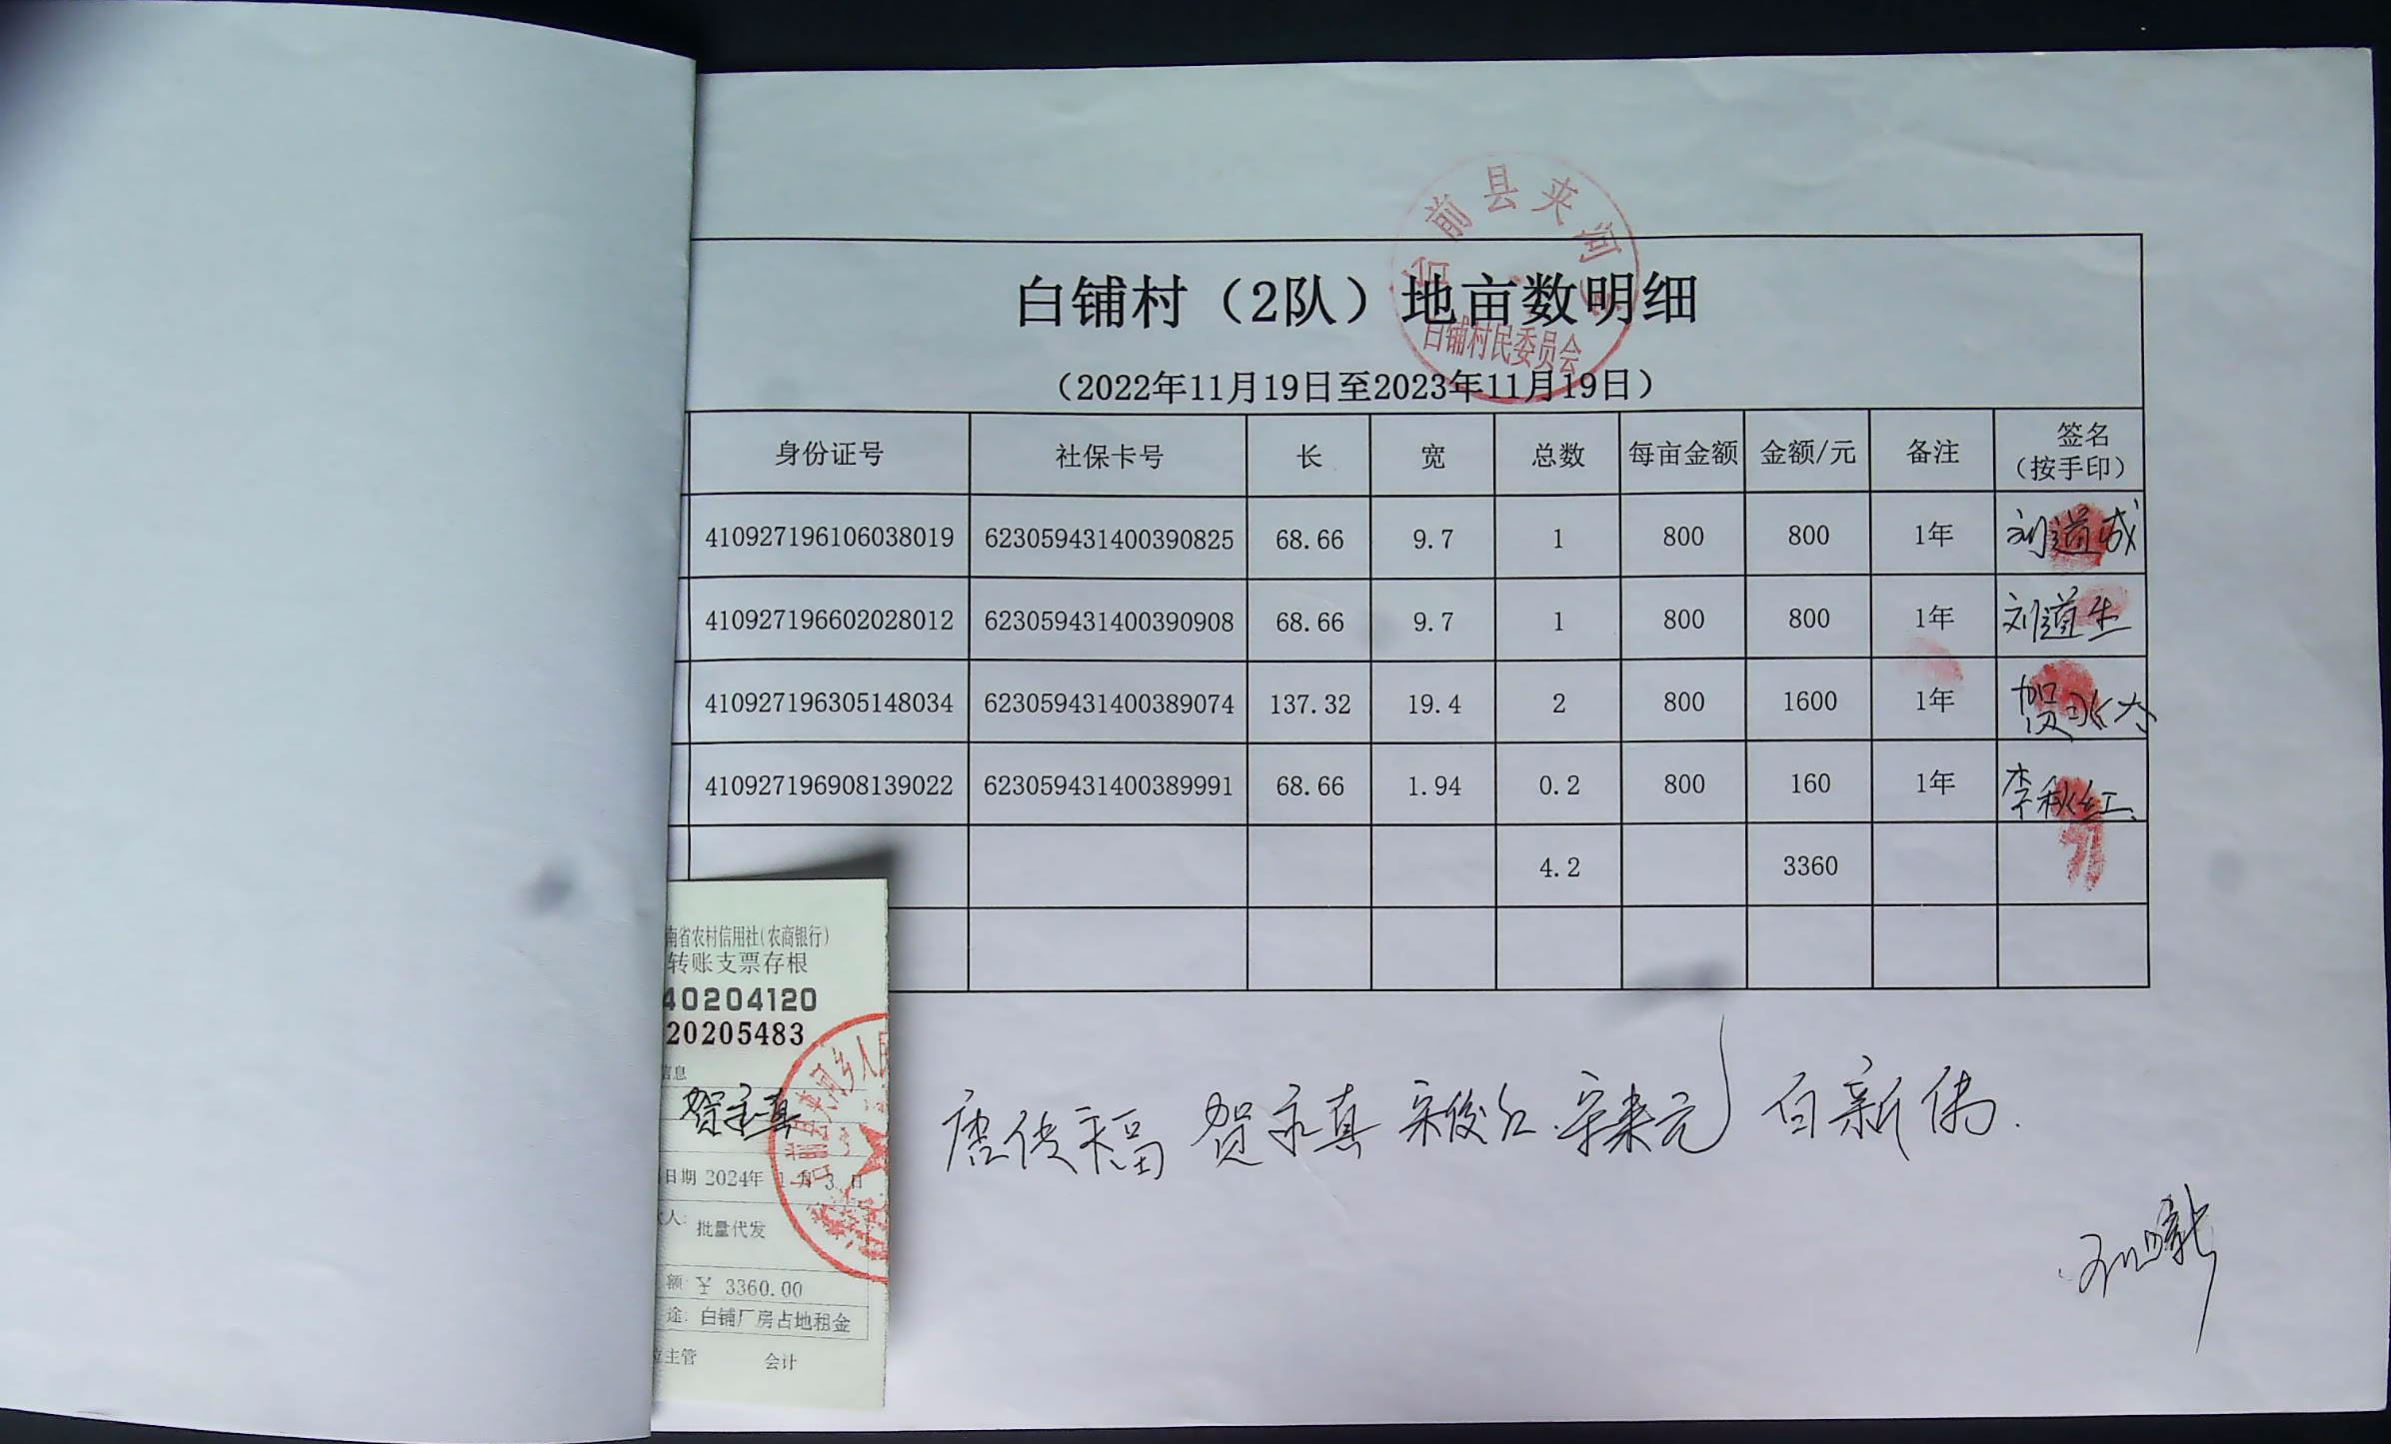 台前县夹河
白铺村民委员会
白铺村（2队）地亩数明细
（2022年11月19日至2023年11月19日）
身份证号 社保卡号 长 宽 总数 每亩金额 金额/元 备注 签名（按手印）
410927196106038019 623059431400390825 68.66 9.7 1 800 800 1年 刘道成
410927196602028012 623059431400390908 68.66 9.7 1 800 800 1年 刘道生
410927196305148034 623059431400389074 137.32 19.4 2 800 1600 1年 贺
410927196908139022 623059431400389991 68.66 1.94 0.2 800 160 1年 李秋红
4.2 3360
南省农村信用社(农商银行)
转账支票存根
40204120
20205483
信息
贺永真
日期 2024年 1月 3 日
人: 批量代发
额: ¥ 3360.00
途: 白铺厂房占地租金
主管 会计
唐传福 贺永真 宋俊红 白新伟